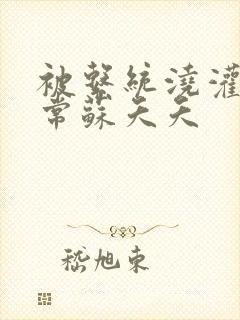 被繫統澆灌
常蘇夭夭
嵇旭東